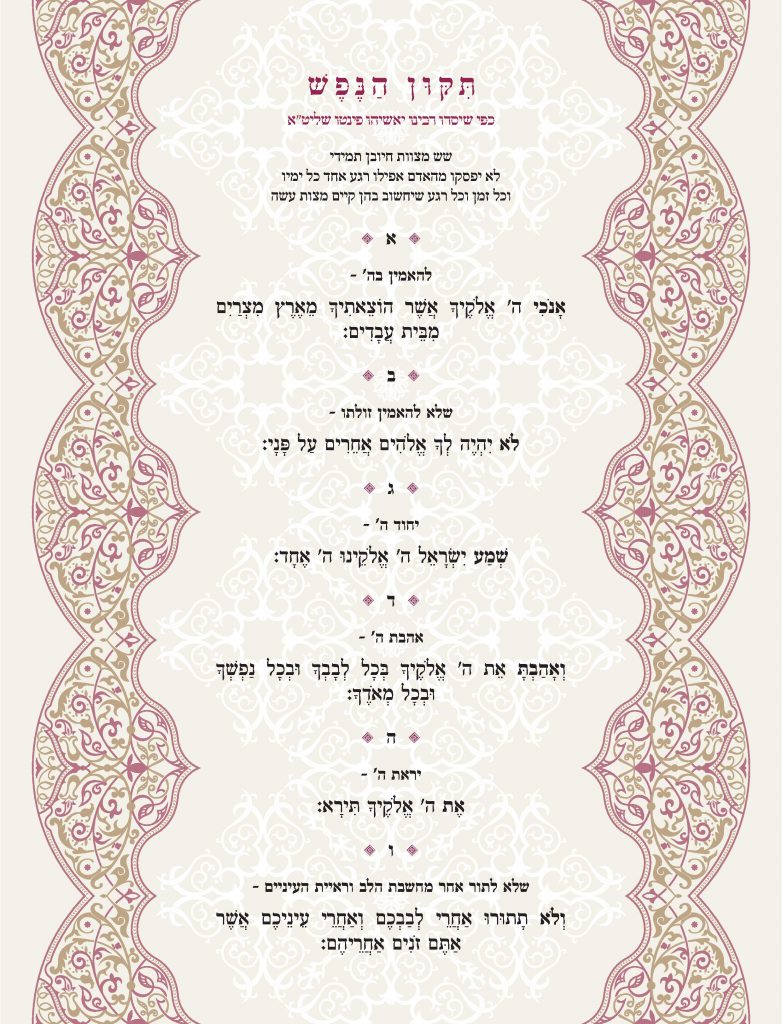 תִּקּוּן הַנֶּפֶשׁ
כפי שיסדו רבינו יאשיהו פינטו שליט"א
שש מצוות חיובן תמידי
לא יפסקו מהאדם אפילו רגע אחד כל ימיו
וכל זמן וכל רגע שיחשוב בהן קיים מצות עשה
א
להאמין בה' -
אָנֹכִי ה' אֱלֹקֶיךָ אֲשֶׁר הוֹצֵאתִיךָ מֵאֶרֶץ מִצְרַיִם
מִבֵּית עֲבָדִים:
ב
שלא להאמין זולתו -
לֹא יִהְיֶה לְךָ אֱלֹהִים אֲחֵרִים עַל פָּנָי:
ג
יחוד ה' -
שְׁמַע יִשְׂרָאֵל ה' אֱלֹקֵינוּ ה' אֶחָד:
ד
אהבת ה' -
וְאָהַבְתָּ אֵת ה' אֱלֹקֶיךָ בְּכָל לְבָבְךָ וּבְכָל נַפְשְׁךָ
וּבְכָל מְאֹדֶךָ:
ה
יראת ה' -
אֶת ה' אֱלֹקֶיךָ תִּירָא:
ו
שלא לתור אחר מחשבת הלב וראיית העיניים -
וְלֹא תָתוּרוּ אַחֲרֵי לְבַבְכֶם וְאַחֲרֵי עֵינֵיכֶם אֲשֶׁר
אַתֶּם זֹנִים אַחֲרֵיהֶם: